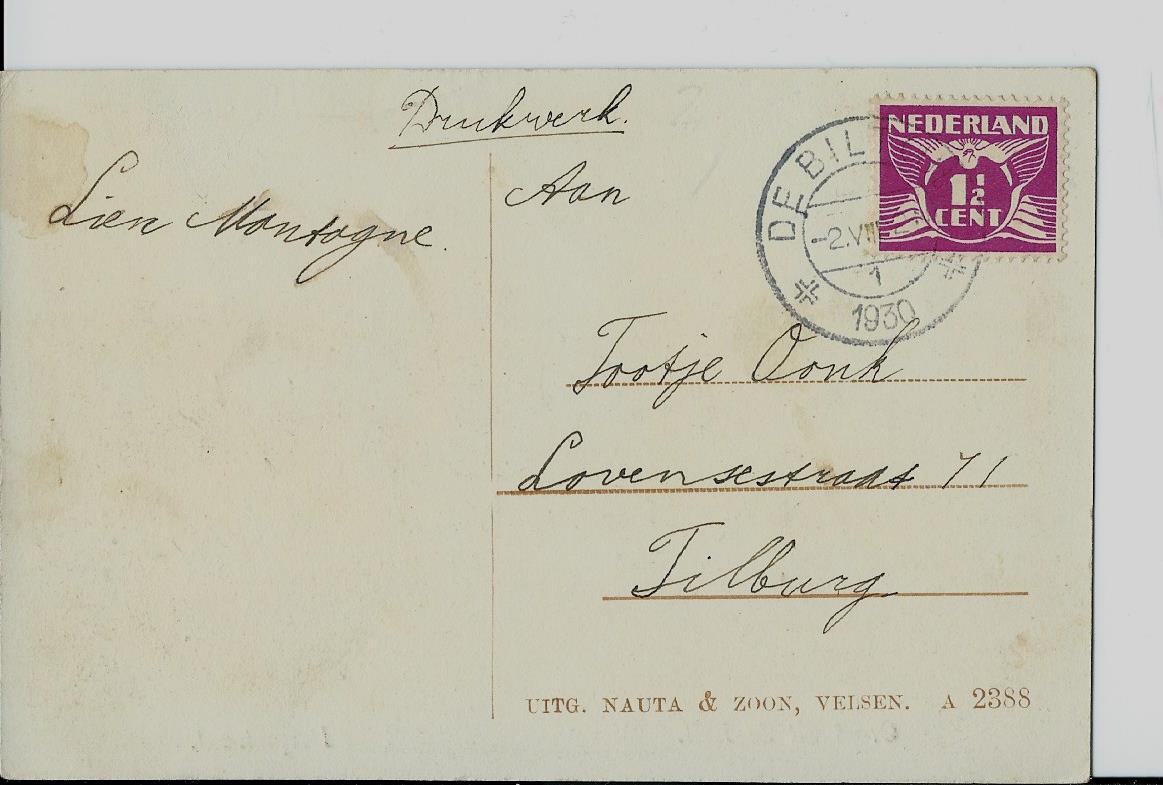 Drukwerk.
Lien Montagne.
Aan
NEDERLAND
1½
CENT
DE BIL
-2.VII
1
1930
Tootje Oonk
Lovensestraat 71
Tilburg
UITG. NAUTA & ZOON, VELSEN. A 2388